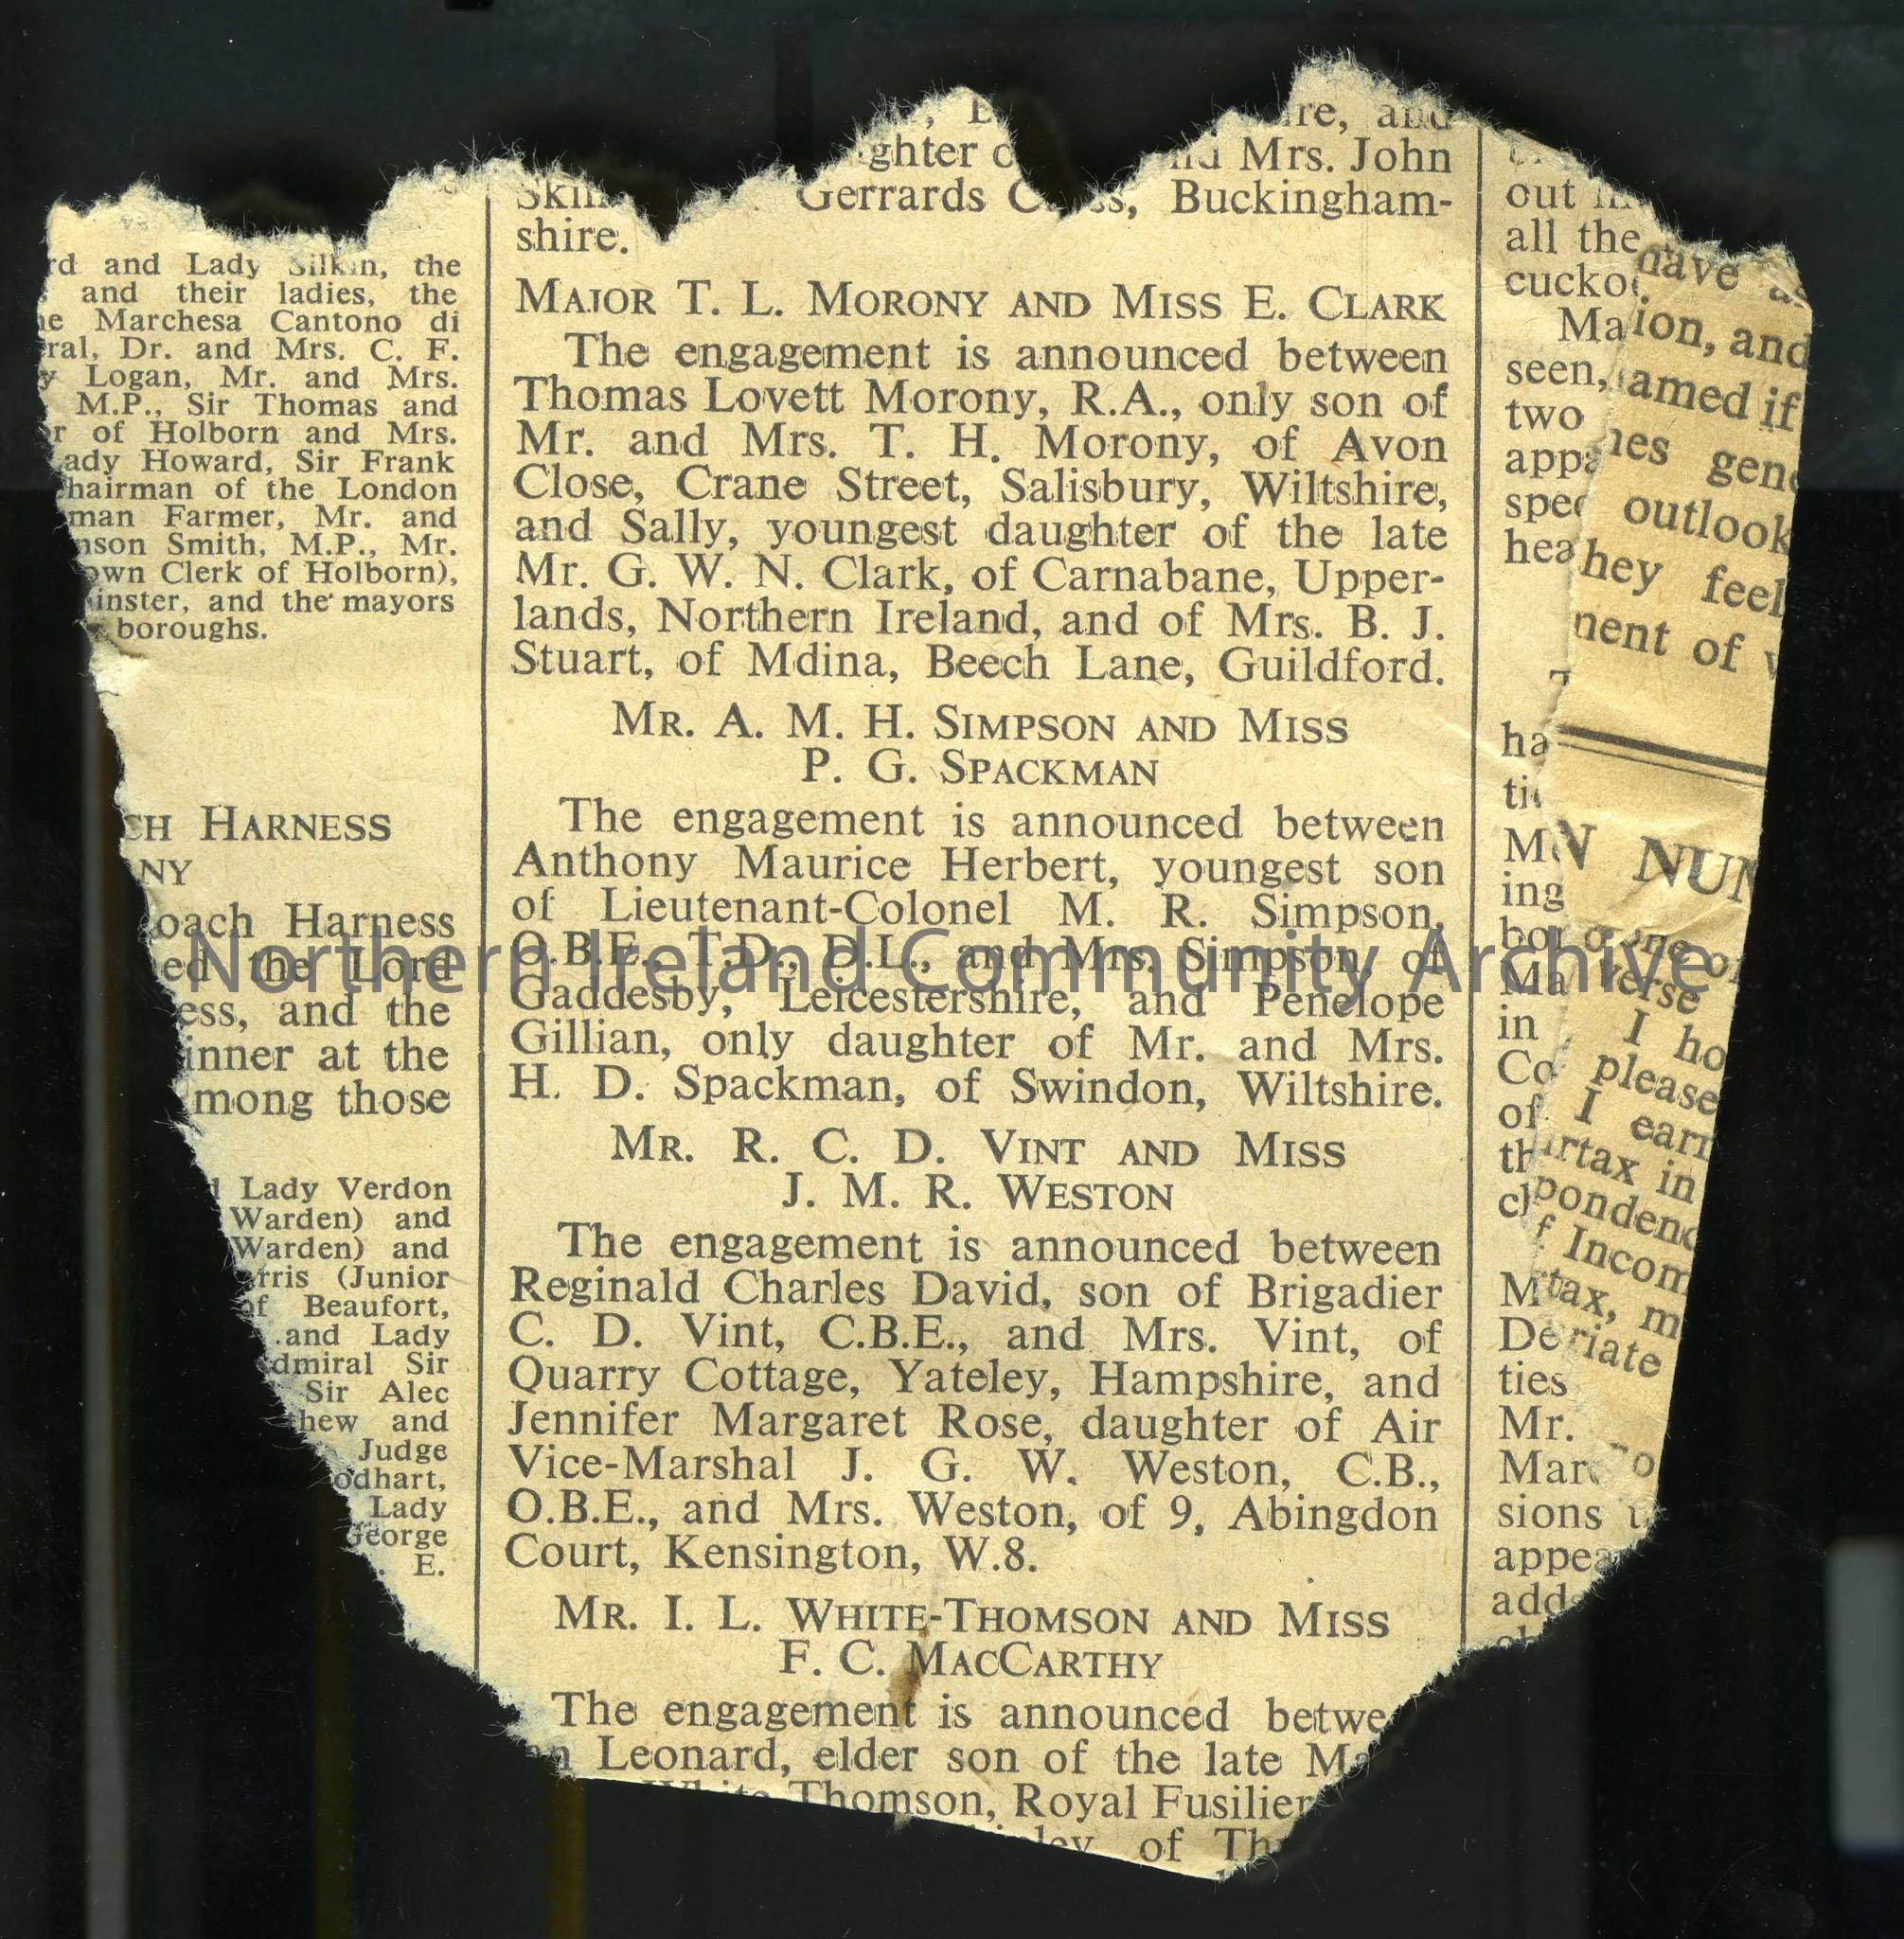 rd and Lady Silkin, the
and their ladies, the
Marchesa Cantono di
ral, Dr. and Mrs. C. F.
y Logan, Mr. and Mrs.
M.P., Sir Thomas and
r of Holborn and Mrs.
ady Howard, Sir Frank
hairman of the London
man Farmer, Mr. and
nson Smith, M.P., Mr.
own Clerk of Holborn),
inster, and the mayors
boroughs.
CH HARNESS
NY
oach Harness
ed the Lord
ess, and the
inner at the
mong those
Lady Verdon
Warden) and
Warden) and
rris (Junior
of Beaufort,
and Lady
dmiral Sir
Sir Alec
hew and
Judge
odhart,
Lady
George
E.
re, and
ghter o Mrs. John
Gerrards C ss, Buckingham-
shire.
MAJOR T. L. MORONY AND MISS E. CLARK
The engagement is announced between
Thomas Lovett Morony, R.A., only son of
Mr. and Mrs. T. H. Morony, of Avon
Close, Crane Street, Salisbury, Wiltshire,
and Sally, youngest daughter of the late
Mr. G. W. N. Clark, of Carnabane, Upper-
lands, Northern Ireland, and of Mrs. B. J.
Stuart, of Mdina, Beech Lane, Guildford.
MR. A. M. H. SIMPSON AND MISS
P. G. SPACKMAN
The engagement is announced between
Anthony Maurice Herbert, youngest son
of Lieutenant-Colonel M. R. Simpson,
O.B.E., T.D., D.L., and Mrs. Simpson, of
Gaddesby, Leicestershire, and Penelope
Gillian, only daughter of Mr. and Mrs.
H. D. Spackman, of Swindon, Wiltshire.
MR. R. C. D. VINT AND MISS
J. M. R. WESTON
The engagement is announced between
Reginald Charles David, son of Brigadier
C. D. Vint, C.B.E., and Mrs. Vint, of
Quarry Cottage, Yateley, Hampshire, and
Jennifer Margaret Rose, daughter of Air
Vice-Marshal J. G. W. Weston, C.B.,
O.B.E., and Mrs. Weston, of 9, Abingdon
Court, Kensington, W.8.
MR. I. L. WHITE-THOMSON AND MISS
F. C. MACCARTHY
The engagement is announced betwe
Leonard, elder son of the late Ma
Thomson, Royal Fusilier
of Th
out
all the
cucko
Ma
seen,
two
appa
spec
hea
ha
ti
M
ing
bor
Ma
in
Co
of
th
cl
M
De
ties
Mr.
Mar
sions
appea
add
have
ion, and
amed if
nes gen
outlook
hey feel
ment of
N NUM
one or
verse
I ho
please
I earn
urtax in
pondenc
f Incom
rtax, m
riate
Northern Ireland Community Archive